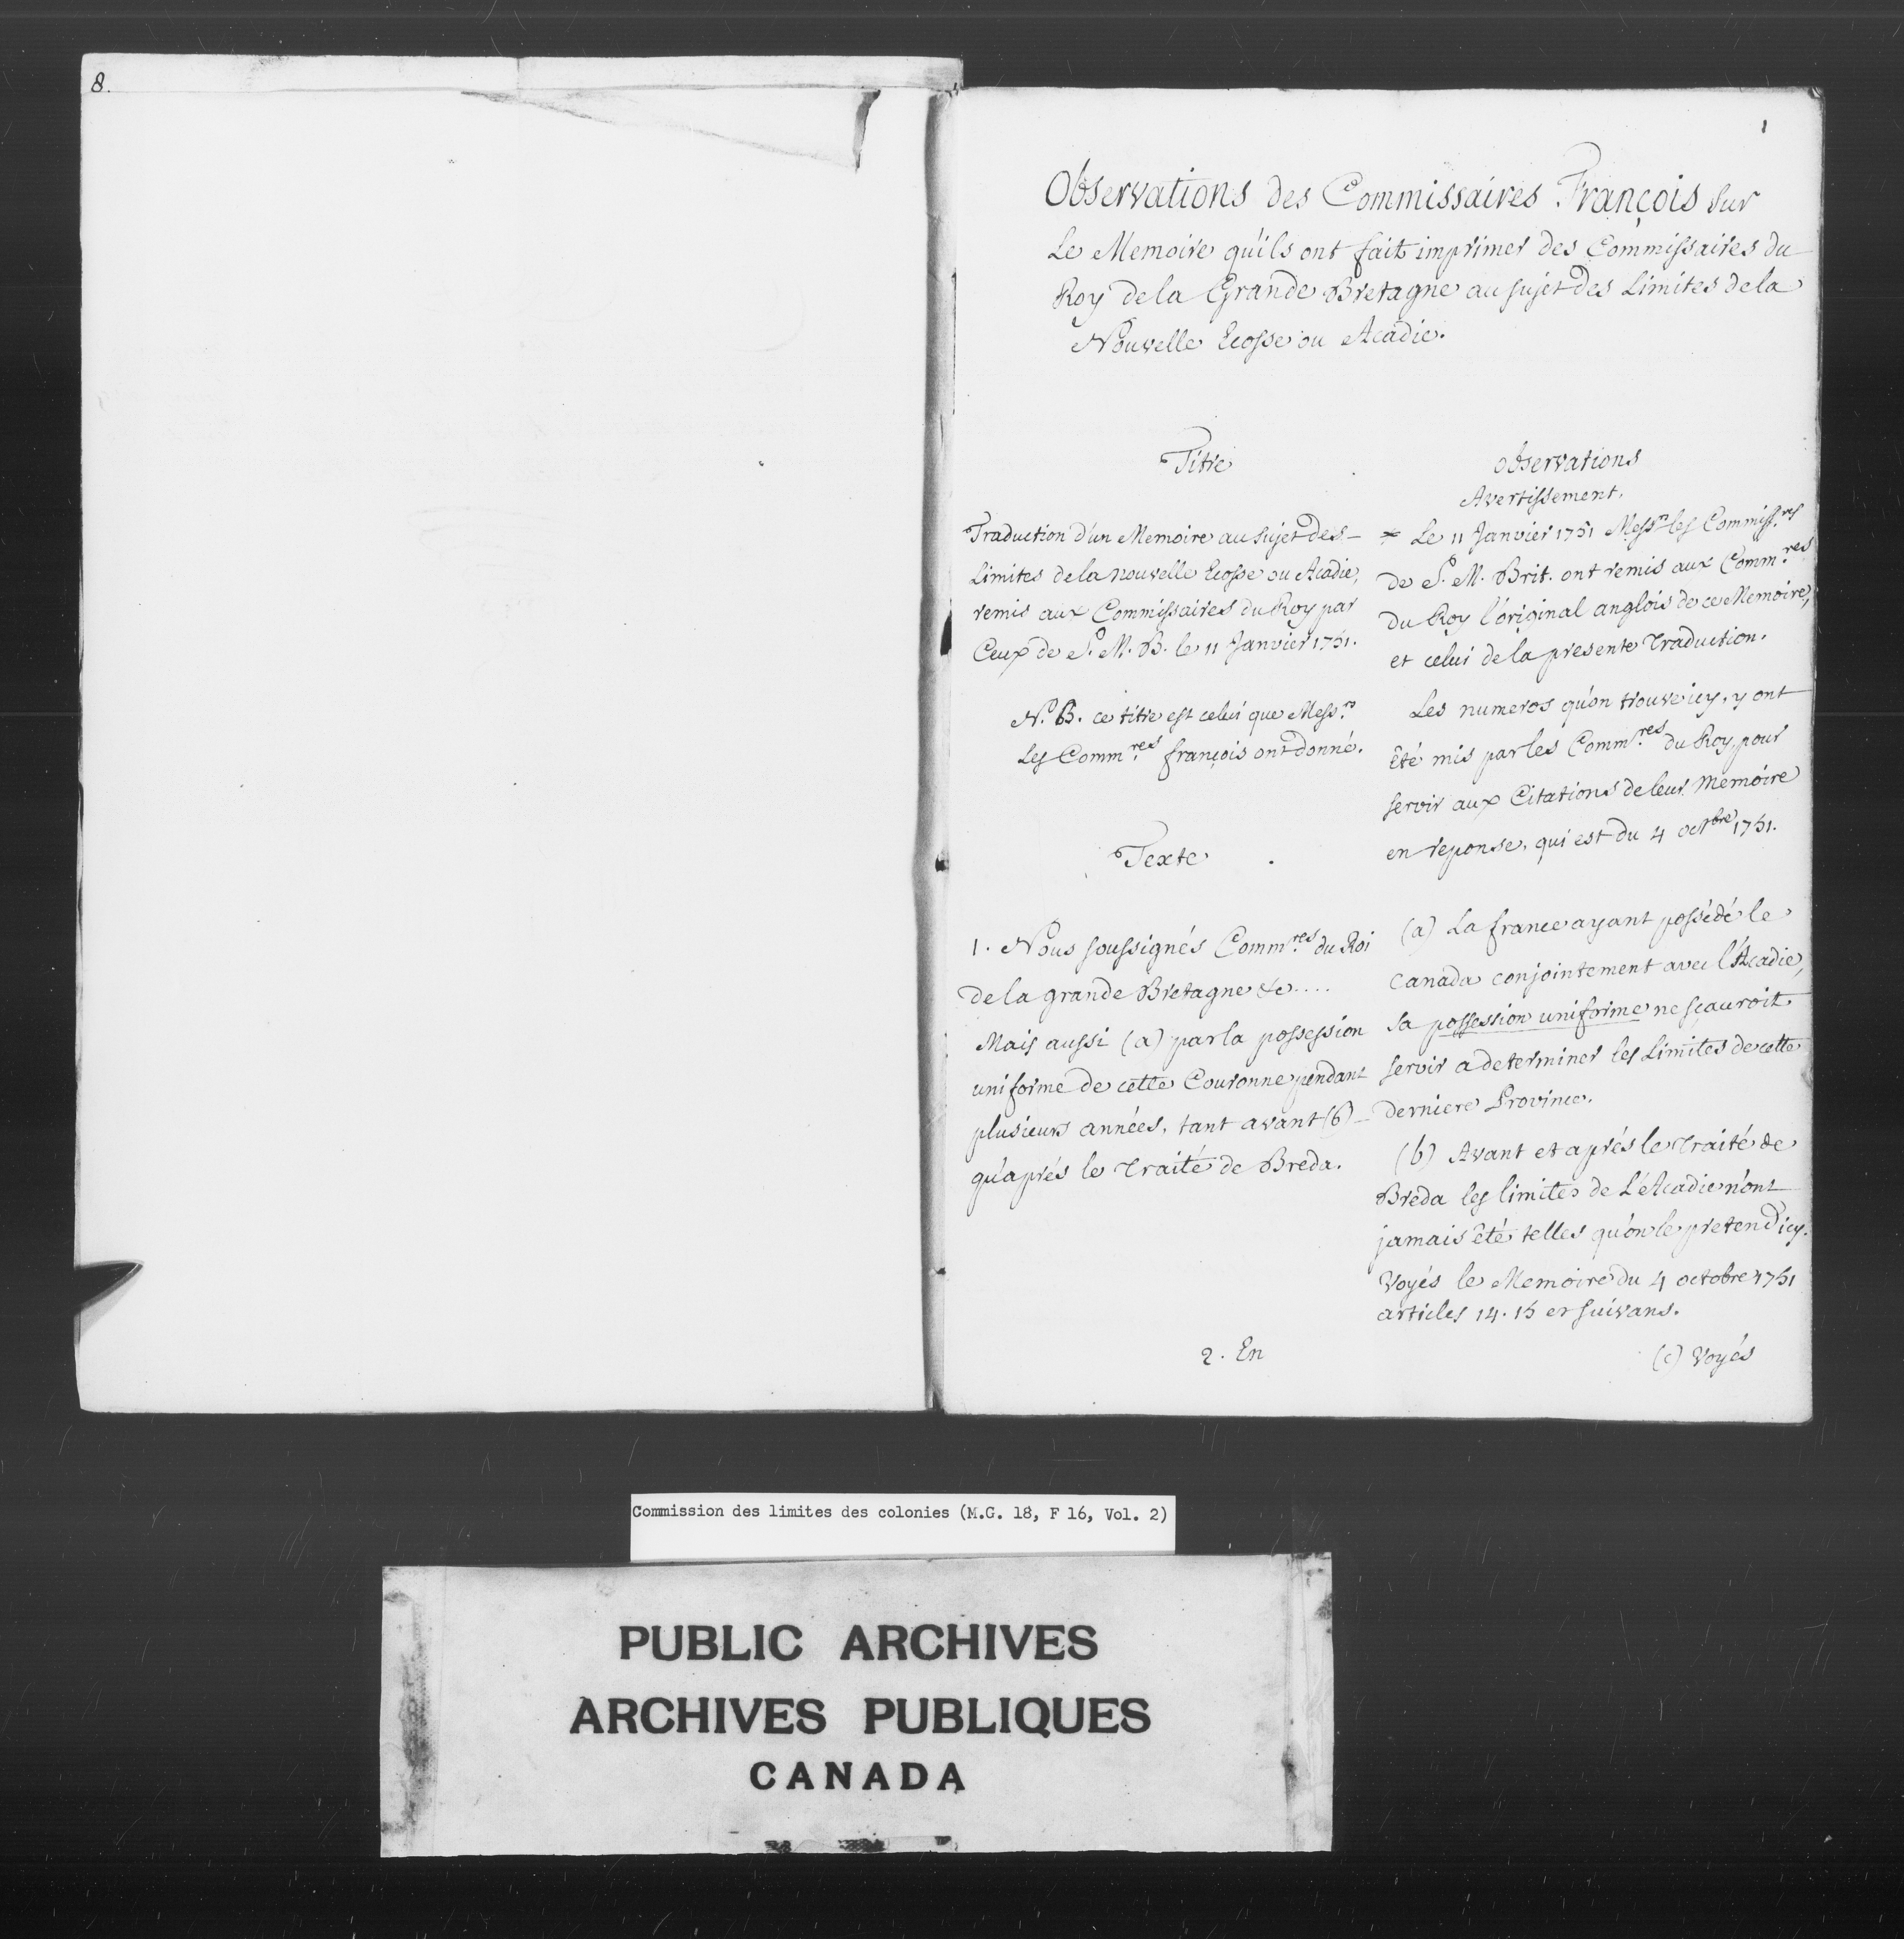 8.
1
Observations des Commissaires François sur
Le Memoire qu'ils ont fait imprimer des Commissaires du
Roy de la Grande Bretagne au sujet des Limites de la
Nouvelle Ecosse ou Acadie.
Titre
Traduction d'un Memoire au sujet des
Limites de la nouvelle Ecosse ou Acadie,
remis aux Commissaires du Roy par
Ceux de S. M. B. le 11 Janvier 1751.
N.a B. ce titre est celui que Mess.rs
Les Comm.res françois ont donné.
Texte
1. Nous soussignés Comm.res du Roi
de la grande Bretagne &c....
Mais aussi (a) par la possession
uniforme de cette Couronne pendant
plusieurs années, tant avant (b)
qu'aprés le Traité de Breda.
2. En
observations
Avertissement.
* Le 11 Janvier 1751 Mess.rs les Commiss.res
de S. M. Brit. ont remis aux Comm.res
du Roy l'original anglois de ce Memoire,
et celui de la presente Traduction.
Les numeros qu'on trouve icy, y ont
été mis par les Comm.res du Roy, pour
servir aux Citations de leur Memoire
en reponse, qui est du 4 octbre 1751.
(a) La france ayant possédé le
Canada conjointement avec l'Acadie,
sa possession uniforme ne sçauroit
servir a determiner les Limites de cette
derniere Province.
(b) Avant et aprés le Traité de
Breda les limites de L'Acadie n'ont
jamais été telles qu'on le pretend icy.
Voyés le Memoire du 4 octobre 1751
articles 14. 15 et suivans.
(c) Voyés
Commission des limites des colonies (M.G. 18, F 16, Vol. 2)
PUBLIC ARCHIVES
ARCHIVES PUBLIQUES
CANADA